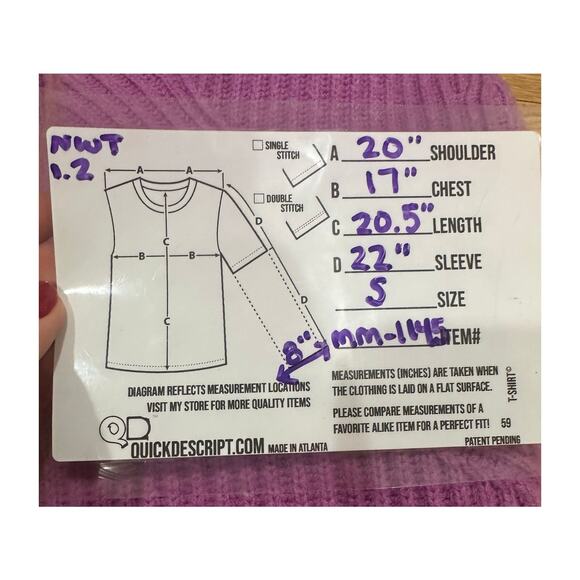 NWT
1.2
SINGLE STITCH
DOUBLE STITCH
A 20" SHOULDER
B 17" CHEST
C 20.5" LENGTH
D 22" SLEEVE
S SIZE
ITEM#
A A
D
C
B B
C
D
8"
DIAGRAM REFLECTS MEASUREMENT LOCATIONS
VISIT MY STORE FOR MORE QUALITY ITEMS
QD
QUICKDESCRIPT.COM MADE IN ATLANTA
MEASUREMENTS (INCHES) ARE TAKEN WHEN
THE CLOTHING IS LAID ON A FLAT SURFACE.
PLEASE COMPARE MEASUREMENTS OF A
FAVORITE ALIKE ITEM FOR A PERFECT FIT! 59
PATENT PENDING
T-SHIRT©